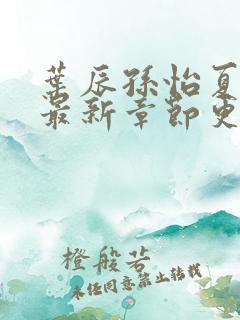 葉辰孫怡夏
最新章節更
橙般若
未经同意禁止转载